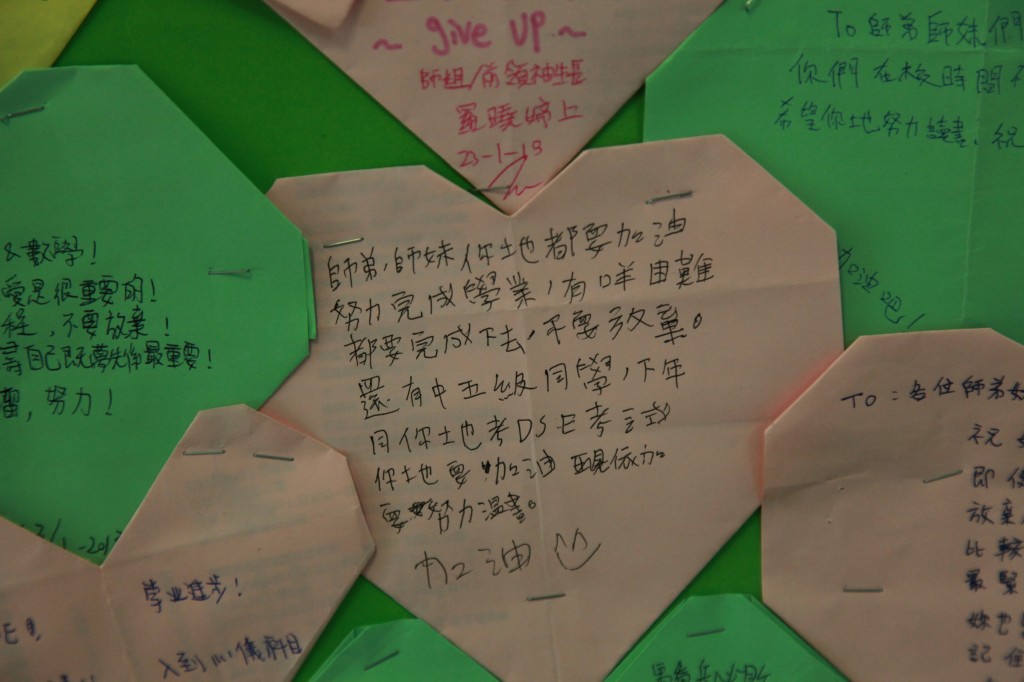 ~ give up ~
師姐/前領袖生長
23-1-13
To 師弟師妹們
你們在校時間不
希望你地努力讀書,祝
加油吧!
& 數學!
愛是很重要的!
程,不要放棄!
尋自己既夢先係最重要!
習,努力!
師弟,師妹你地都要加油
努力完成學業,有咩困難
都要完成下去,不要放棄。
還有中五級同學,下年
同你地考DSE考試
你地要加油 依加
要努力溫書。
加油
TO:各位師弟妹
祝
即使
放棄
比較
最緊
妳也
記住
學业進步!
入到 心儀科目